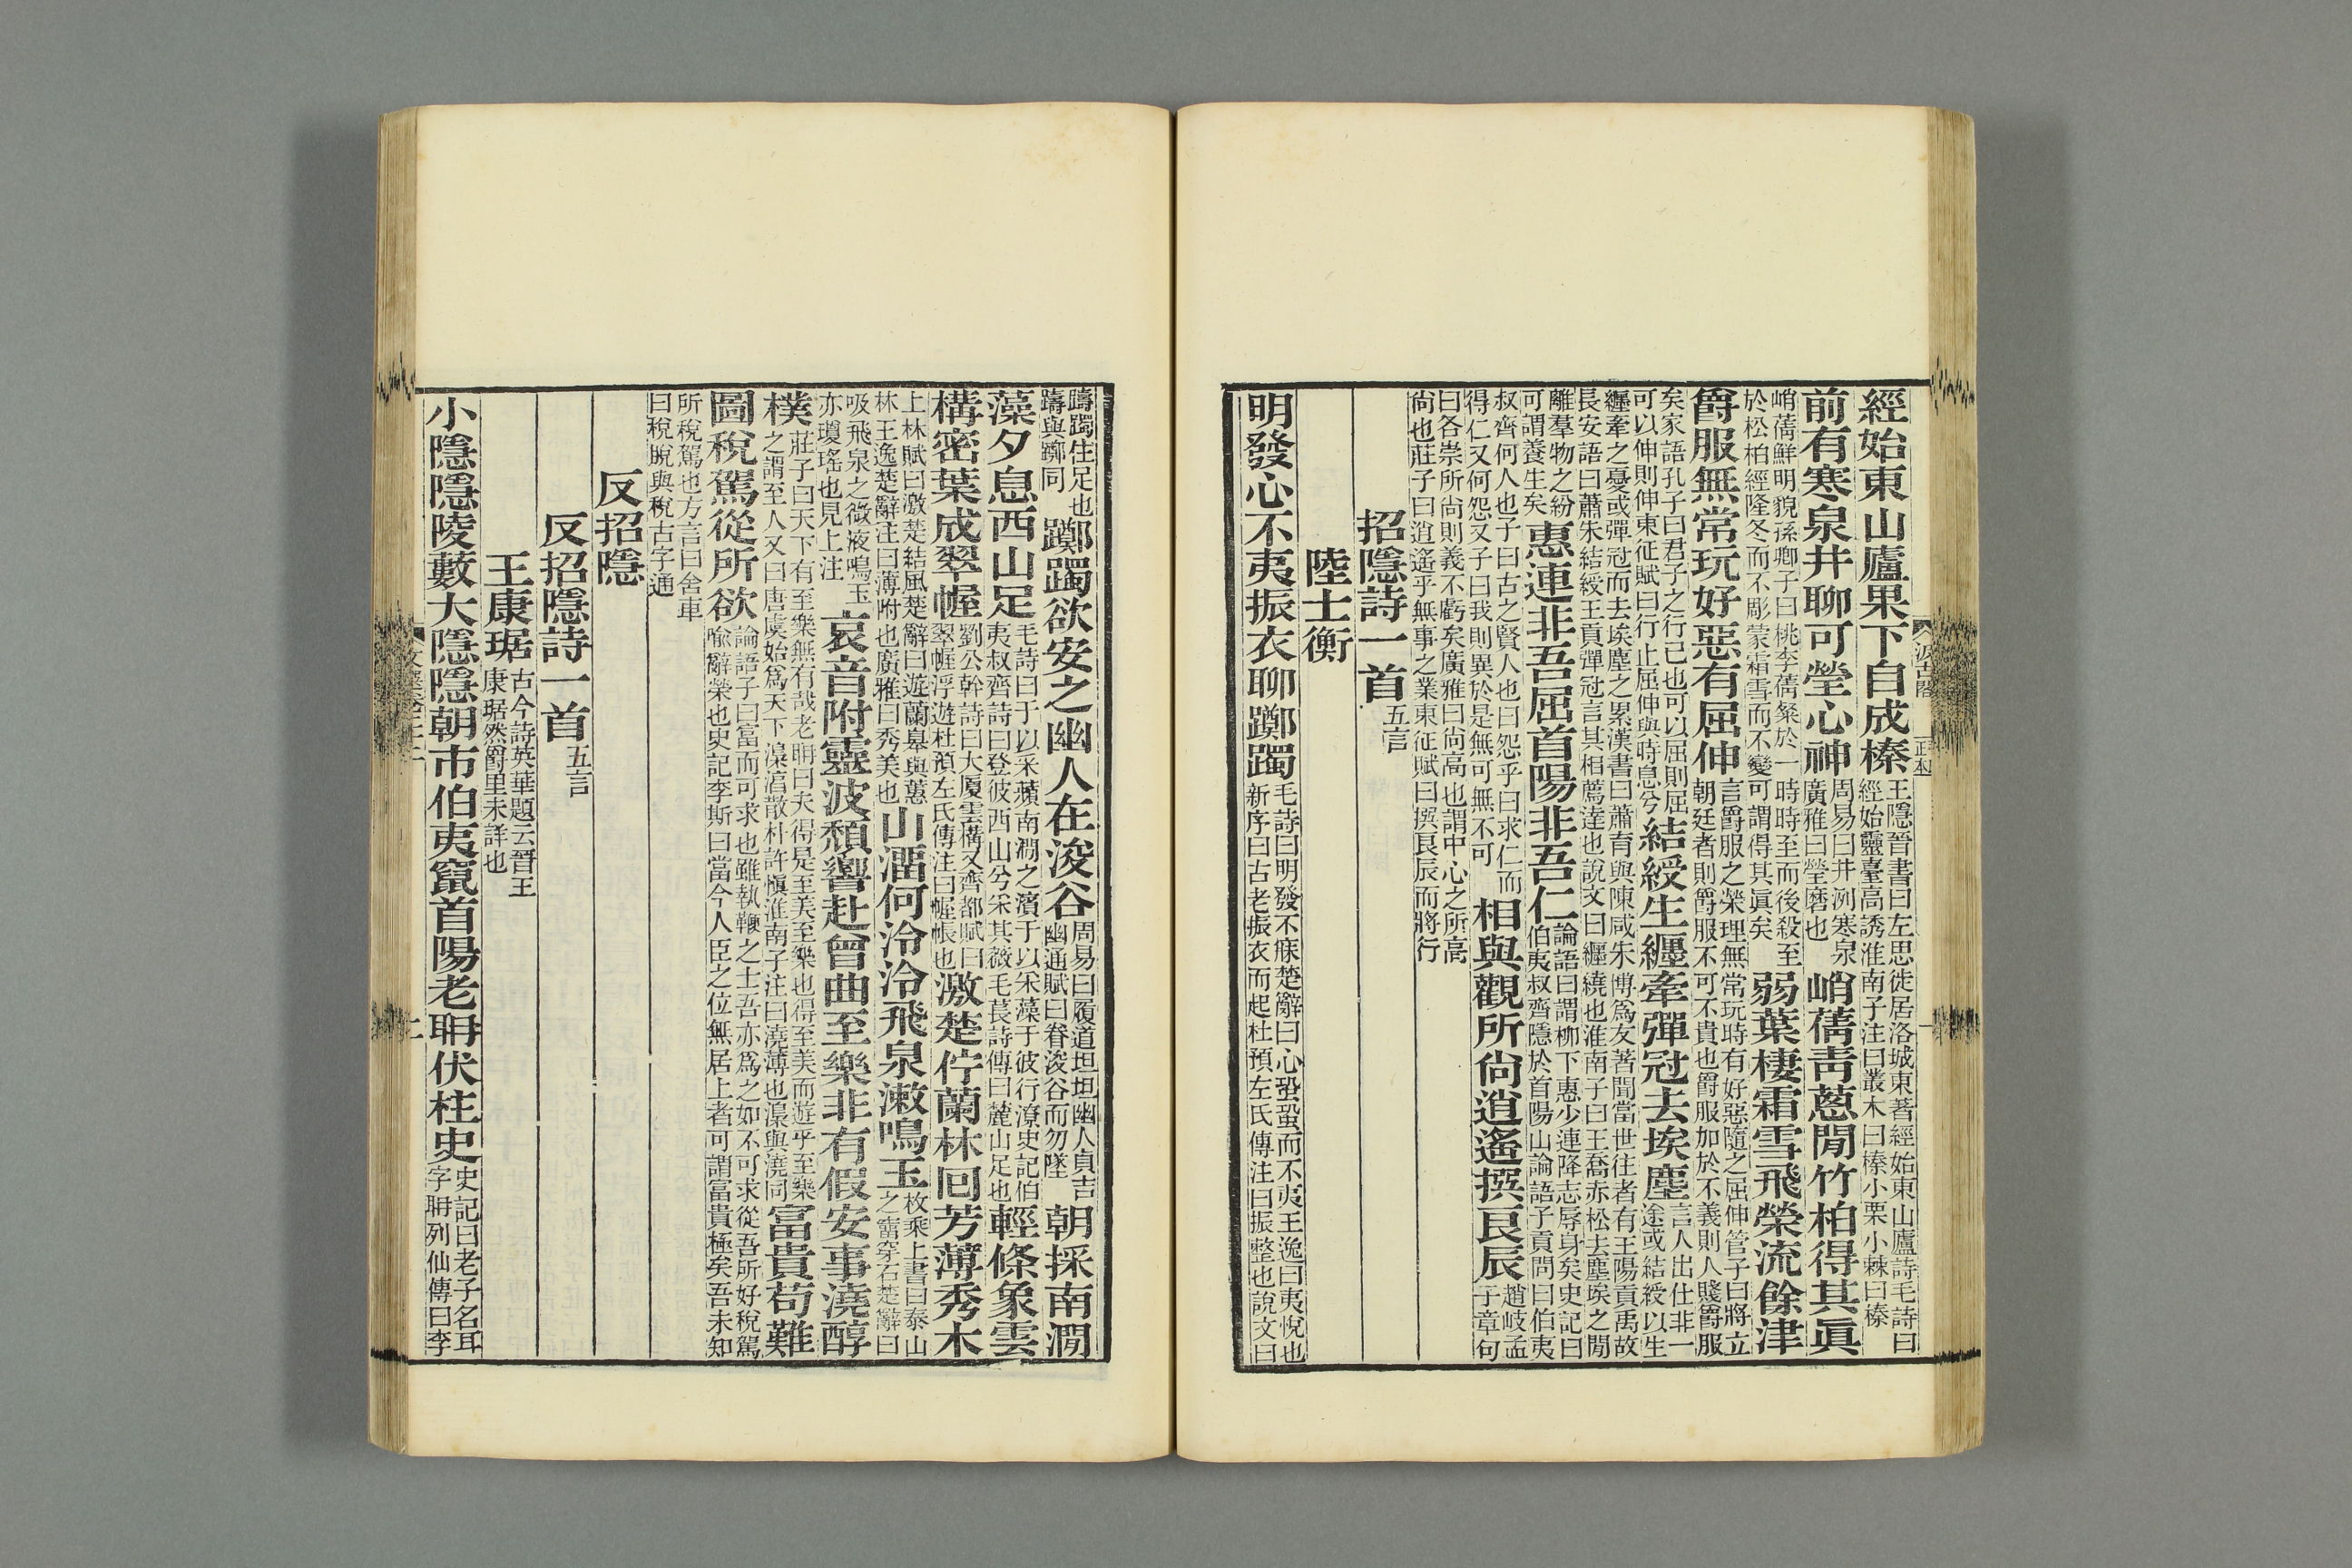 經始東山廬果下自成榛王隱晉書曰左思徙居洛城東著經始東山廬詩毛詩曰經始靈臺高誘淮南子注曰叢木曰榛小栗小棘曰榛
前有寒泉井聊可瑩心神周易曰井洌寒泉廣雅曰瑩磨也峭蒨靑蔥閒竹柏得其眞
峭蒨鮮明貌孫卿子曰桃李蒨粲於一時時至而後殺至於松柏經隆冬而不彫蒙霜雪而不變可謂得其眞矣弱葉棲霜雪飛榮流餘津
爵服無常玩好惡有屈伸言爵服之榮理無常玩時有好惡隨之屈伸管子曰將立朝廷者則爵服不可不貴也爵服加於不義則人賤爵服
矣家語孔子曰君子之行己也可以屈則屈可以伸則伸東征賦曰行止屈伸與時息兮結綬生纏牽彈冠去埃塵言人出仕非一途或結綬以生
纏牽之憂或彈冠而去埃塵之累漢書曰蕭育與陳咸朱博爲友著聞當世往者有王陽貢禹故長安語曰蕭朱結綬王貢彈冠言其相薦達也說文曰纏繞也淮南子曰王喬赤松去塵埃之閒
離羣物之紛可謂養生矣惠連非吾屈首陽非吾仁論語曰謂柳下惠少連降志辱身矣史記曰伯夷叔齊隱於首陽山論語子貢問曰伯夷
叔齊何人也子曰古之賢人也曰怨乎曰求仁而得仁又何怨又子曰我則異於是無可無不可相與觀所尙逍遙撰良辰趙岐孟子章句
曰各崇所尙則義不虧矣廣雅曰尙高也謂中心之所高尙也莊子曰逍遙乎無事之業東征賦曰撰良辰而將行
招隱詩一首五言
陸士衡
明發心不夷振衣聊躑躅毛詩曰明發不寐楚辭曰心蛩蛩而不夷王逸曰夷悅也新序曰古老振衣而起杜預左氏傳注曰振整也說文曰
躊躅住足也躊與躑同躑躅欲安之幽人在浚谷周易曰履道坦坦幽人貞吉幽通賦曰眷浚谷而勿墜朝採南澗
藻夕息西山足毛詩曰于以采蘋南澗之濱于以采藻于彼行潦史記伯夷叔齊詩曰登彼西山兮采其薇毛萇詩傳曰麓山足也輕條象雲
構密葉成翠幄劉公幹詩曰大厦雲構又齊都賦曰翠幄浮遊杜預左氏傳注曰幄帳也激楚佇蘭林回芳薄秀木
上林賦曰激楚結風楚辭曰遊蘭皋與蕙林王逸楚辭注曰薄附也廣雅曰秀美也山溜何泠泠飛泉漱鳴玉枚乘上書曰泰山之霤穿石楚辭曰
吸飛泉之微液鳴玉亦瓊瑤也見上注哀音附靈波頹響赴曾曲至樂非有假安事澆醇
樸莊子曰天下有至樂無有哉老耼曰夫得是至美至樂也得至美而遊乎至樂之謂至人又曰唐虞始爲天下澆淳散朴許愼淮南子注曰澆薄也澆與澆同富貴苟難
圖稅駕從所欲論語子曰富而可求也雖執鞭之士吾亦爲之如不可求從吾所好稅駕喻辭榮也史記李斯曰當今人臣之位無居上者可謂富貴極矣吾未知
所稅駕也方言曰舍車曰稅脫與稅古字通
反招隱
反招隱詩一首五言
王康琚古今詩英華題云晉王康琚然爵里未詳也
小隱隱陵藪大隱隱朝市伯夷竄首陽老耼伏柱史史記曰老子名耳字耼列仙傳曰李